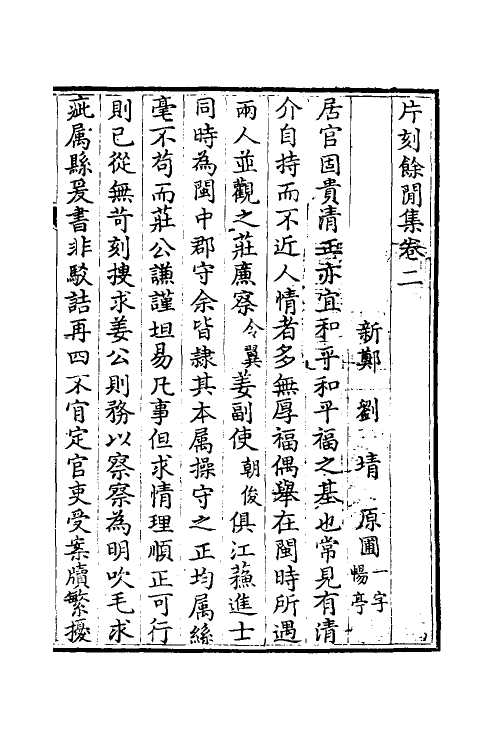 片刻餘閒集卷二
新鄭 劉 埥 原圃一字暢亭
居官固貴清正亦宜和平和平福之基也常見有清
介自持而不近人情者多無厚福偶舉在閩時所遇
兩人並觀之莊廉察令翼姜副使朝俊俱江蘓進士
同時為閩中郡守余皆隷其本属操守之正均属絲
毫不苟而莊公謙謹坦易凡事但求情理順正可行
則已從無苛刻搜求姜公則務以察察為明吹毛求
疵属縣爰書非駁詰再四不肯定官吏受案牘繁擾